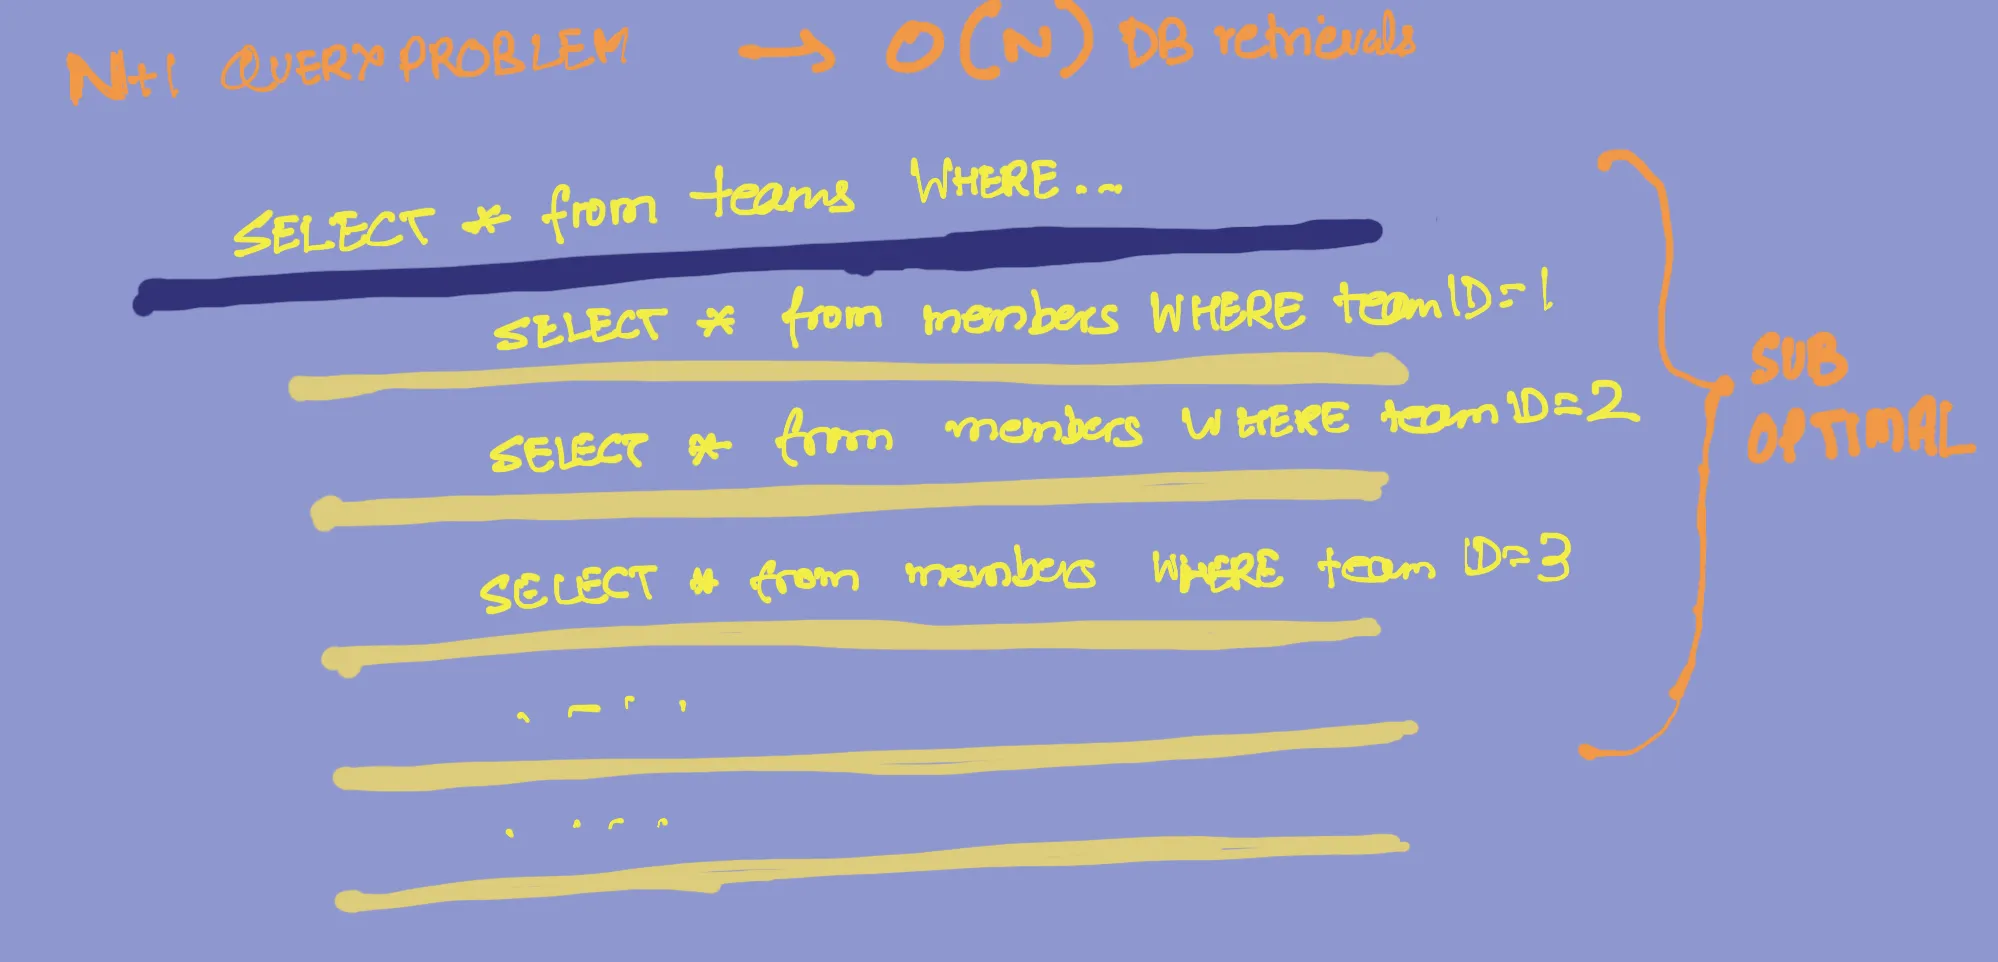 N+1 QUERY PROBLEM → O(N) DB retrievals
SELECT * from teams WHERE...
SELECT * from members WHERE teamID=1
SELECT * from members WHERE teamID=2
SELECT * from members WHERE team ID=3
. - . .
. . . .
SUB
OPTIMAL